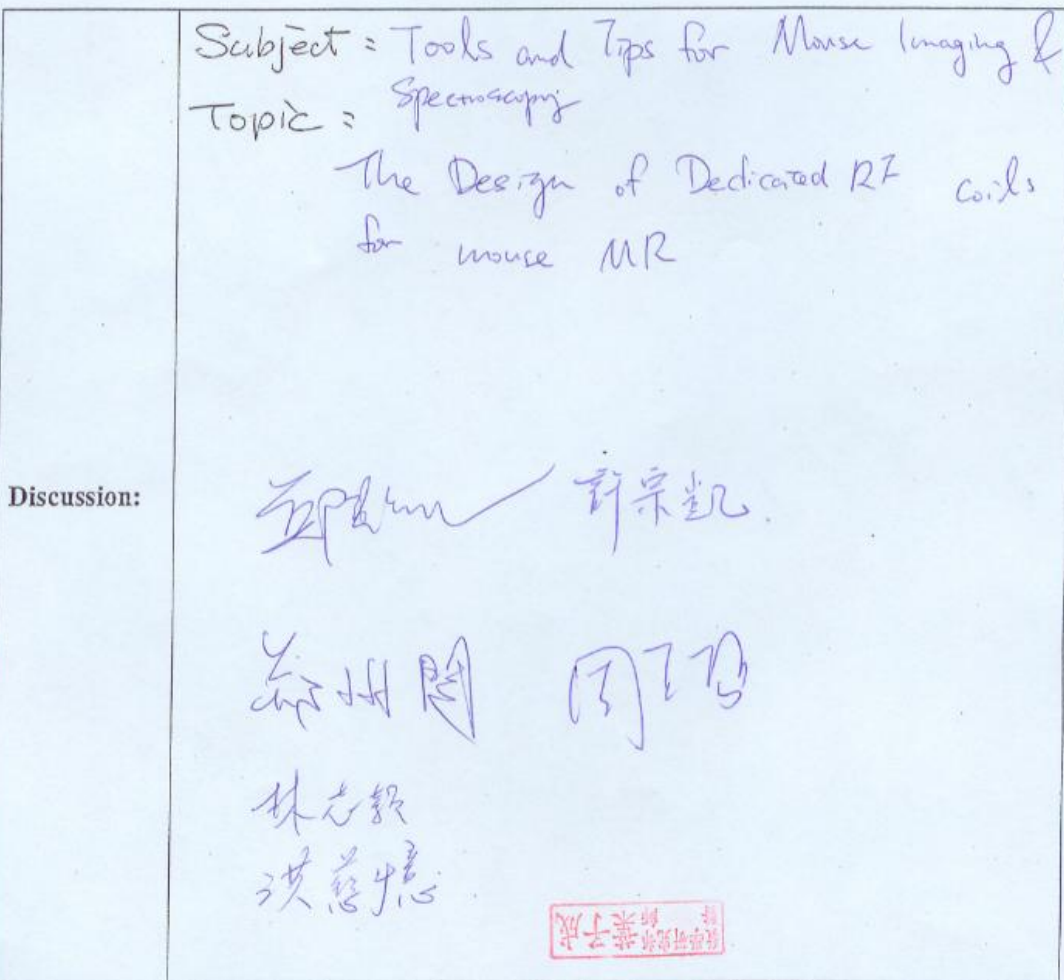 Subject : Tools and Tips for Mouse Imaging &
Spectroscopy
Topic :
The Design of Dedicated RF coils
for mouse MR
Discussion:
許宗凱
林志穎
洪慈憶
教學研究部
葉子成